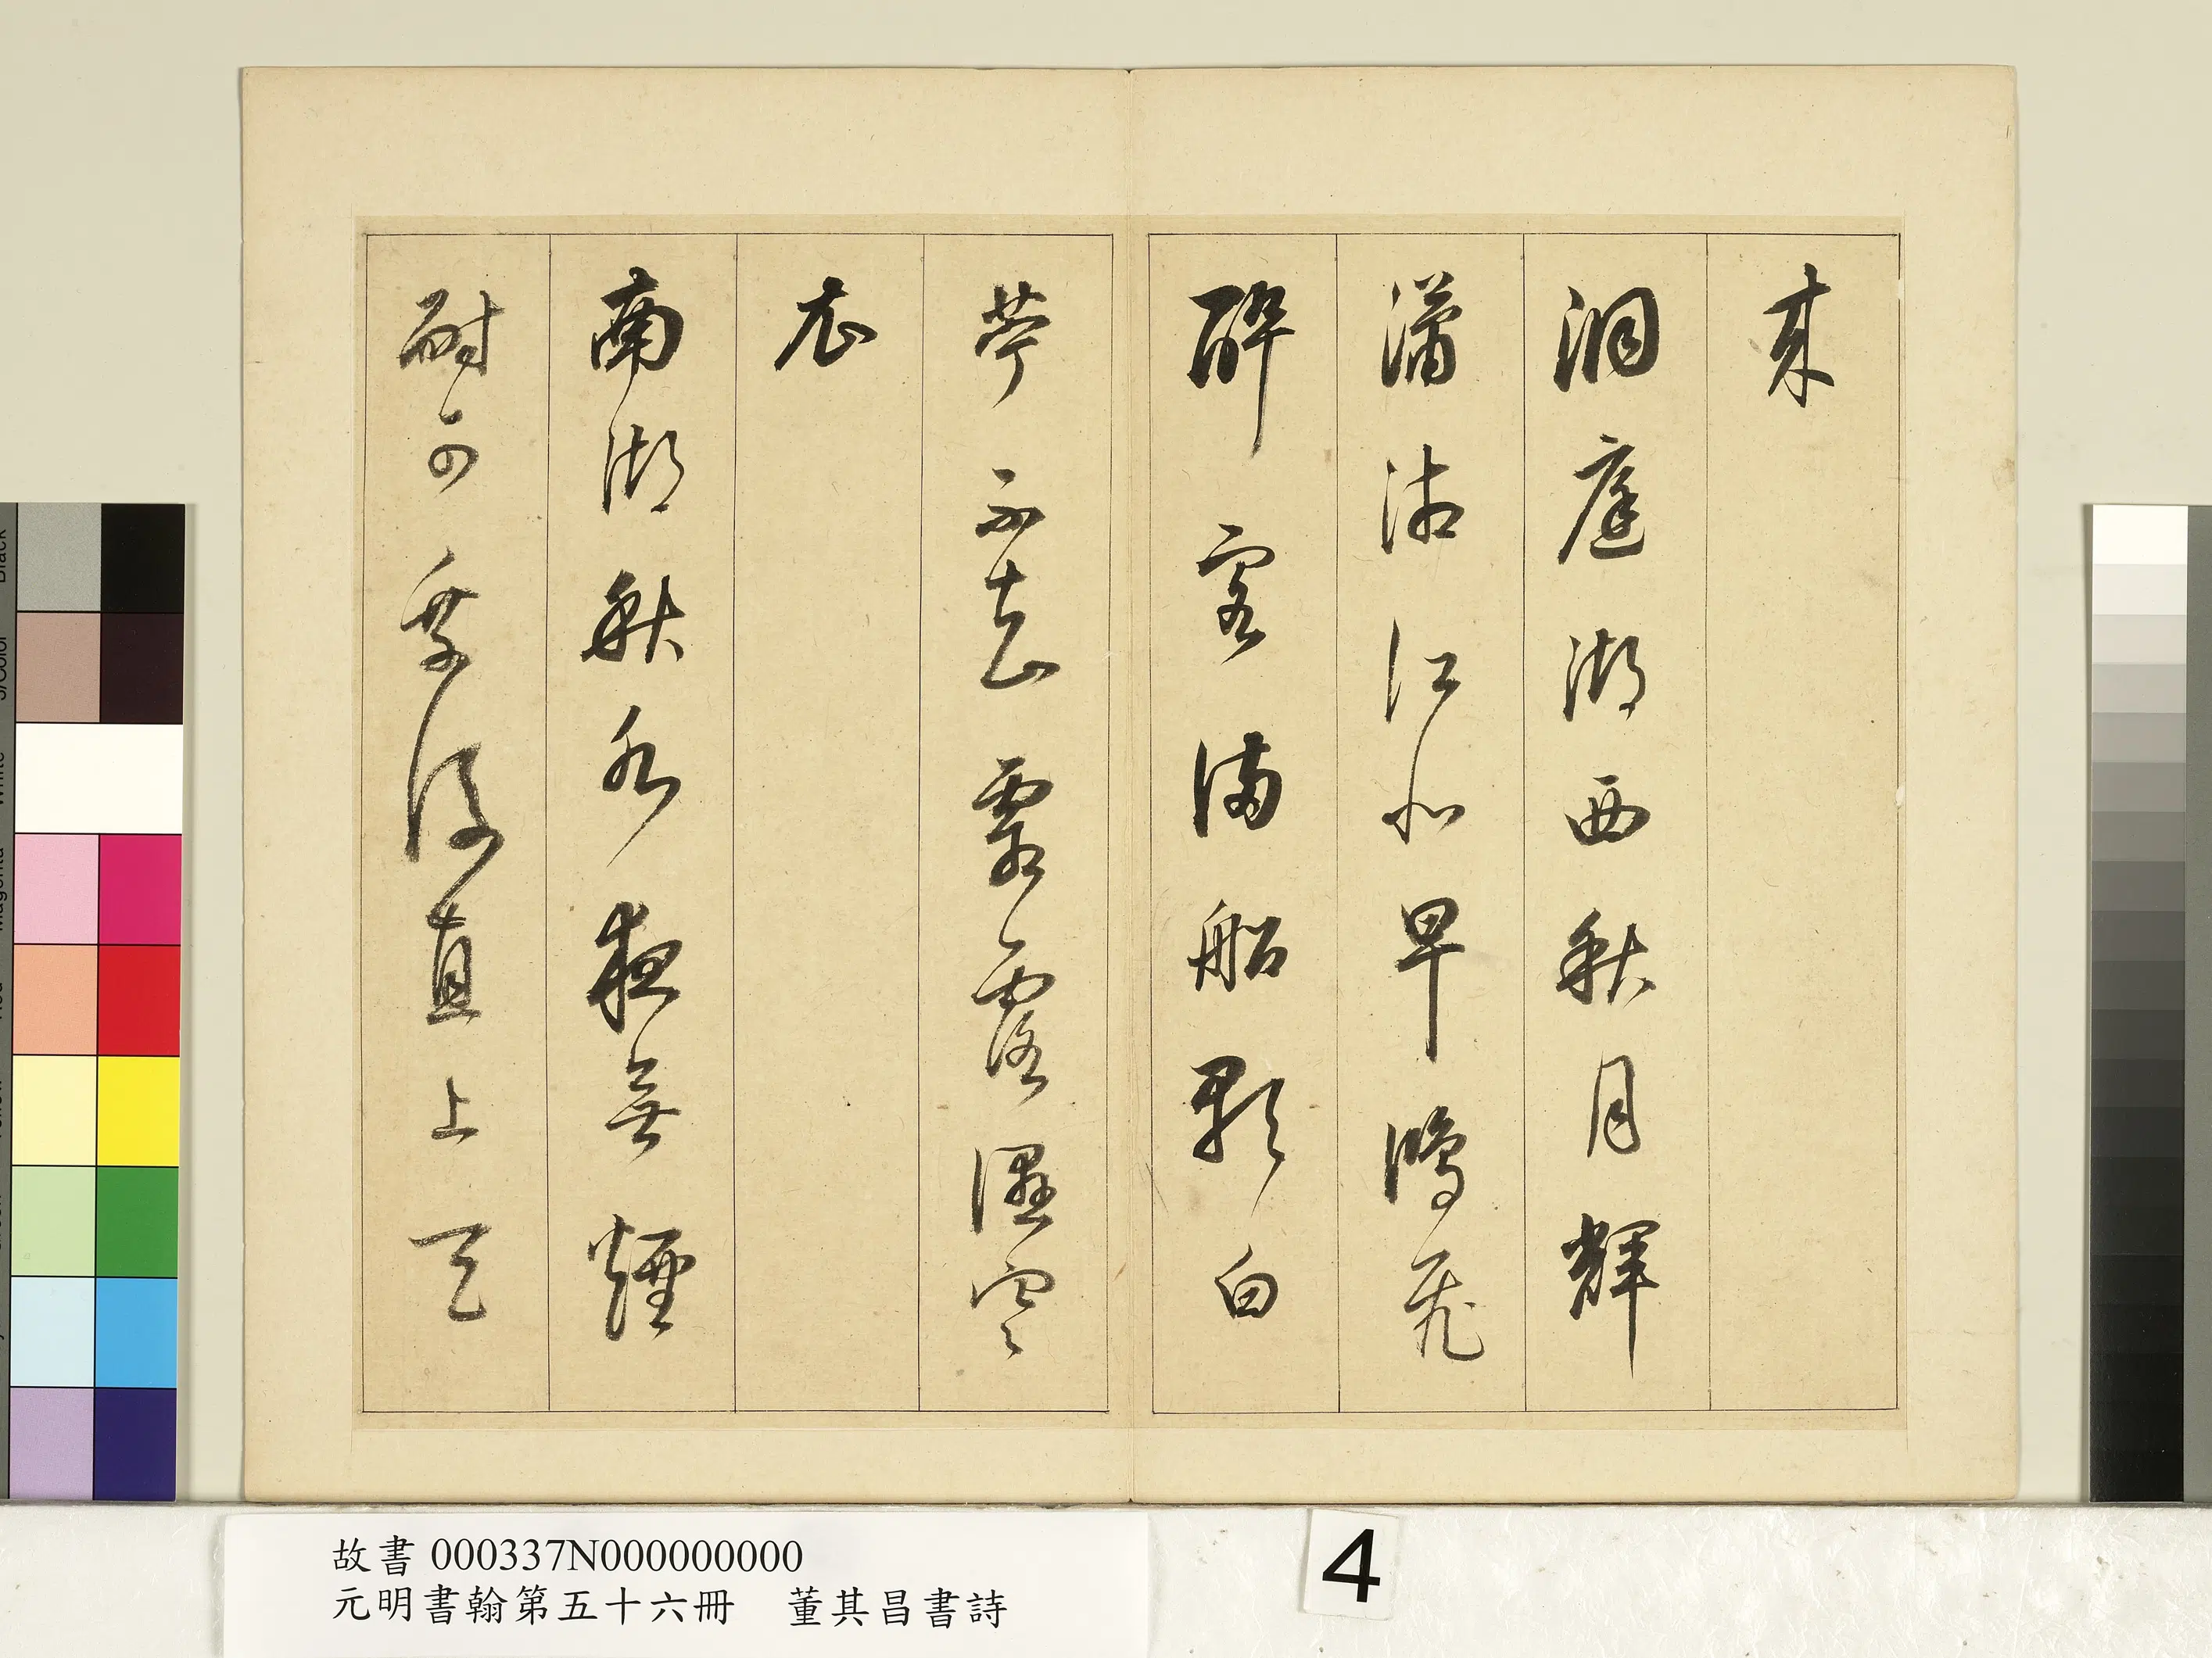 来
洞庭湖西秋月輝
瀟湘江北早鴻飛
醉客滿船歌白
苧不知霜露濕寒
衣
南湖秋水夜無煙
耐可乘流直上天
故書 000337N000000000
元明書翰第五十六冊　董其昌書詩
4